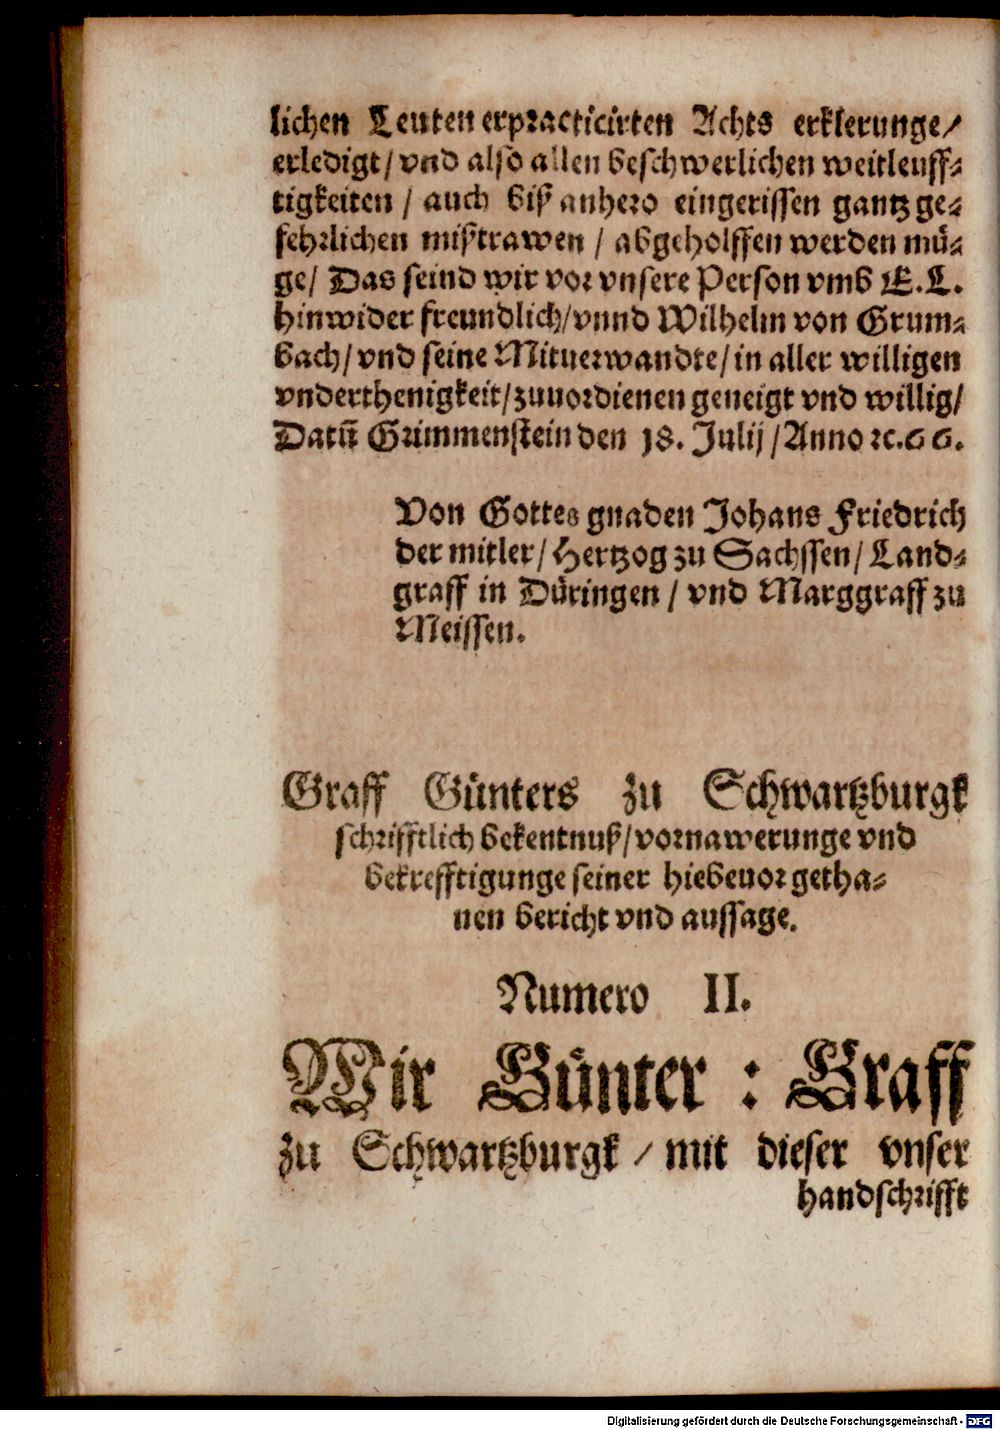 lichen Leuten erpracticirten Achts erklerunge/
erledigt/ vnd also allen beschwerlichen weitleuff-
tigkeiten / auch biß anhero eingerissen gantz ge-
fehrlichen mißtrawen / abgeholffen werden mü-
ge/ Das seind wir vor vnsere Person vmb E.L.
hinwider freundlich/vnnd Wilhelm von Grum-
bach/ vnd seine Mituerwandte/ in aller willigen
vnderthenigkeit/zuuordienen geneigt vnd willig/
Datū Grimmenstein den 18. Julij /Anno ꝛc.66.
Von Gottes gnaden Johans Friedrich
der mitler/ Hertzog zu Sachssen/ Land-
graff in Düringen / vnd Marggraff zu
Meissen.
Graff Günters zu Schwartzburgk
schrifftlich bekentnuß/vornawerunge vnd
bekrefftigunge seiner hiebeuor getha-
nen bericht vnd aussage.
Numero II.
Wir Günter : Graff
zu Schwartzburgk / mit dieser vnser
handschrifft
Digitalisierung gefördert durch die Deutsche Forschungsgemeinschaft - DFG